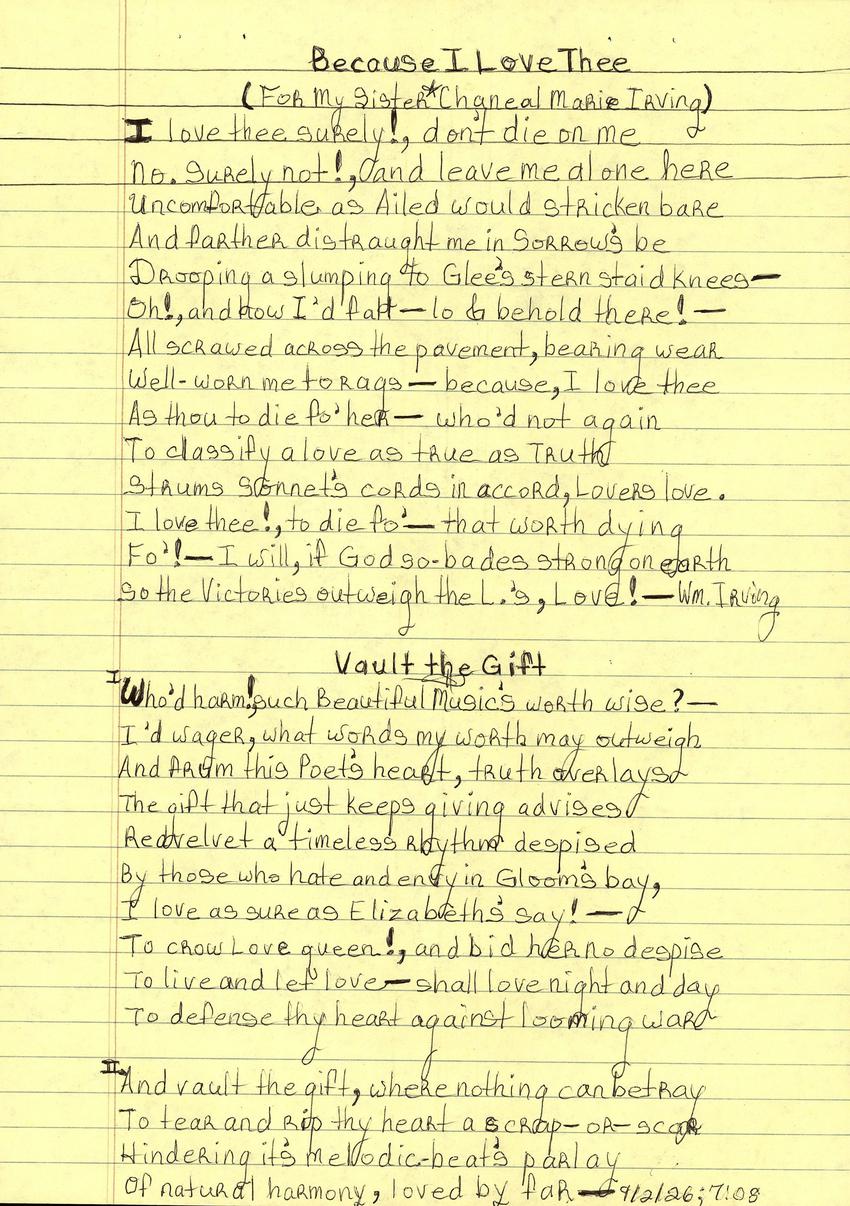 Because I Love Thee
(For My Sister*Chaneal Marie Irving)
I love thee surely!, don't die on me
no. Surely not!, and leave me alone here
Uncomfortable as Ailed would stricken bare
And farther distraught me in Sorrow's be
Drooping a slumping to Glee's stern staid knees—
Oh!, and how I'd fall—lo & behold there!—
All scrawed across the pavement, bearing wear
Well-worn me to rags—because, I love thee
As thou to die fo' her—who'd not again
To classify a love as true as Truth
Strums Sonnet's cords in accord, Lovers love.
I love thee!, to die fo'—that worth dying
Fo'!—I will, if God so-bades strong on earth
So the Victories outweigh the L.'s, Love!—Wm. Irving
Vault the Gift
I
Who'd harm! such Beautiful Music's worth wise?—
I'd wager, what words my worth may outweigh
And from this Poet's heart, truth overlays
The gift that just keeps giving advises
Redvelvet a timeless rhythm despised
By those who hate and envy in Gloom's bay,
I love as sure as Elizabeth's say!—
To crow Love queen!, and bid her no despise
To live and let love—shall love night and day
To defense thy heart against looming ward
II
And vault the gift, where nothing can betray
To tear and rip thy heart a scrap-or-scar
Hindering it's melodic-beat's parlay
Of natural harmony, loved by far—9/2/26; 7:08